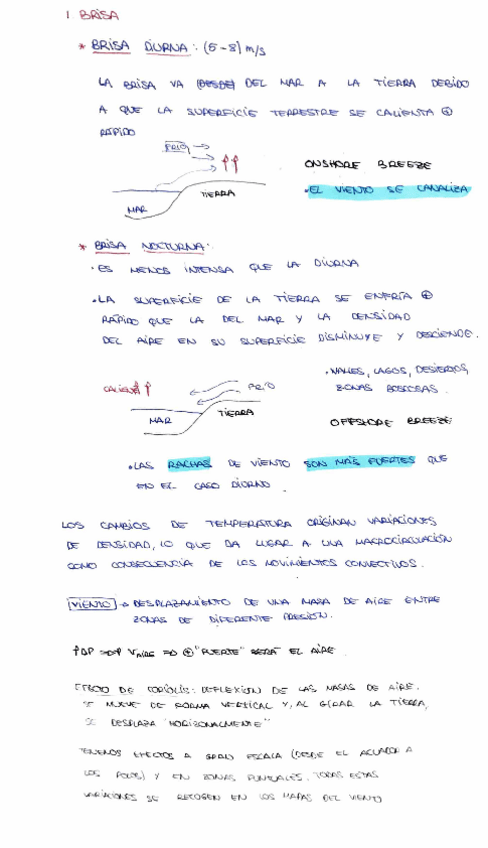 1. BRISA
* BRISA DIURNA: (5-8) m/s
LA BRISA VA (DESDE) DEL MAR A LA TIERRA DEBIDO
A QUE LA SUPERFICIE TERRESTRE SE CALIENTA ⊕
RÁPIDO
FRÍO →
↑↑
ONSHORE BREEZE
TIERRA
• EL VIENTO SE CANALIZA
MAR
* BRISA NOCTURNA:
• ES MENOS INTENSA QUE LA DIURNA
• LA SUPERFICIE DE LA TIERRA SE ENFRÍA ⊕
RÁPIDO QUE LA DEL MAR Y LA DENSIDAD
DEL AIRE EN SU SUPERFICIE DISMINUYE Y DESCIENDE.
• VALLES, LAGOS, DESIERTOS,
ZONAS BOSCOSAS.
FRÍO
TIERRA
MAR
OFFSHORE BREEZE
• LAS RACHAS DE VIENTO SON MÁS FUERTES QUE
EN EL CASO DIURNO
LOS CAMBIOS DE TEMPERATURA ORIGINAN VARIACIONES
DE DENSIDAD, LO QUE DA LUGAR A UNA MACROCIRCULACIÓN
COMO CONSECUENCIA DE LOS MOVIMIENTOS CONVECTIVOS.
VIENTO → DESPLAZAMIENTO DE UNA MASA DE AIRE ENTRE
ZONAS DE DIFERENTE PRESIÓN.
⊕ "FUERTE" SERÁ EL AIRE
EFECTO DE CORIOLIS: DEFLEXIÓN DE LAS MASAS DE AIRE.
SE MUEVE DE FORMA VERTICAL Y, AL GIRAR LA TIERRA,
SE DESPLAZA "HORIZONALMENTE"
TENEMOS EFECTOS A GRAN ESCALA (DESDE EL ECUADOR A
LOS POLOS) Y EN ZONAS PUNTUALES. TODAS ESTAS
VARIACIONES SE RECOGEN EN LOS MAPAS DEL VIENTO